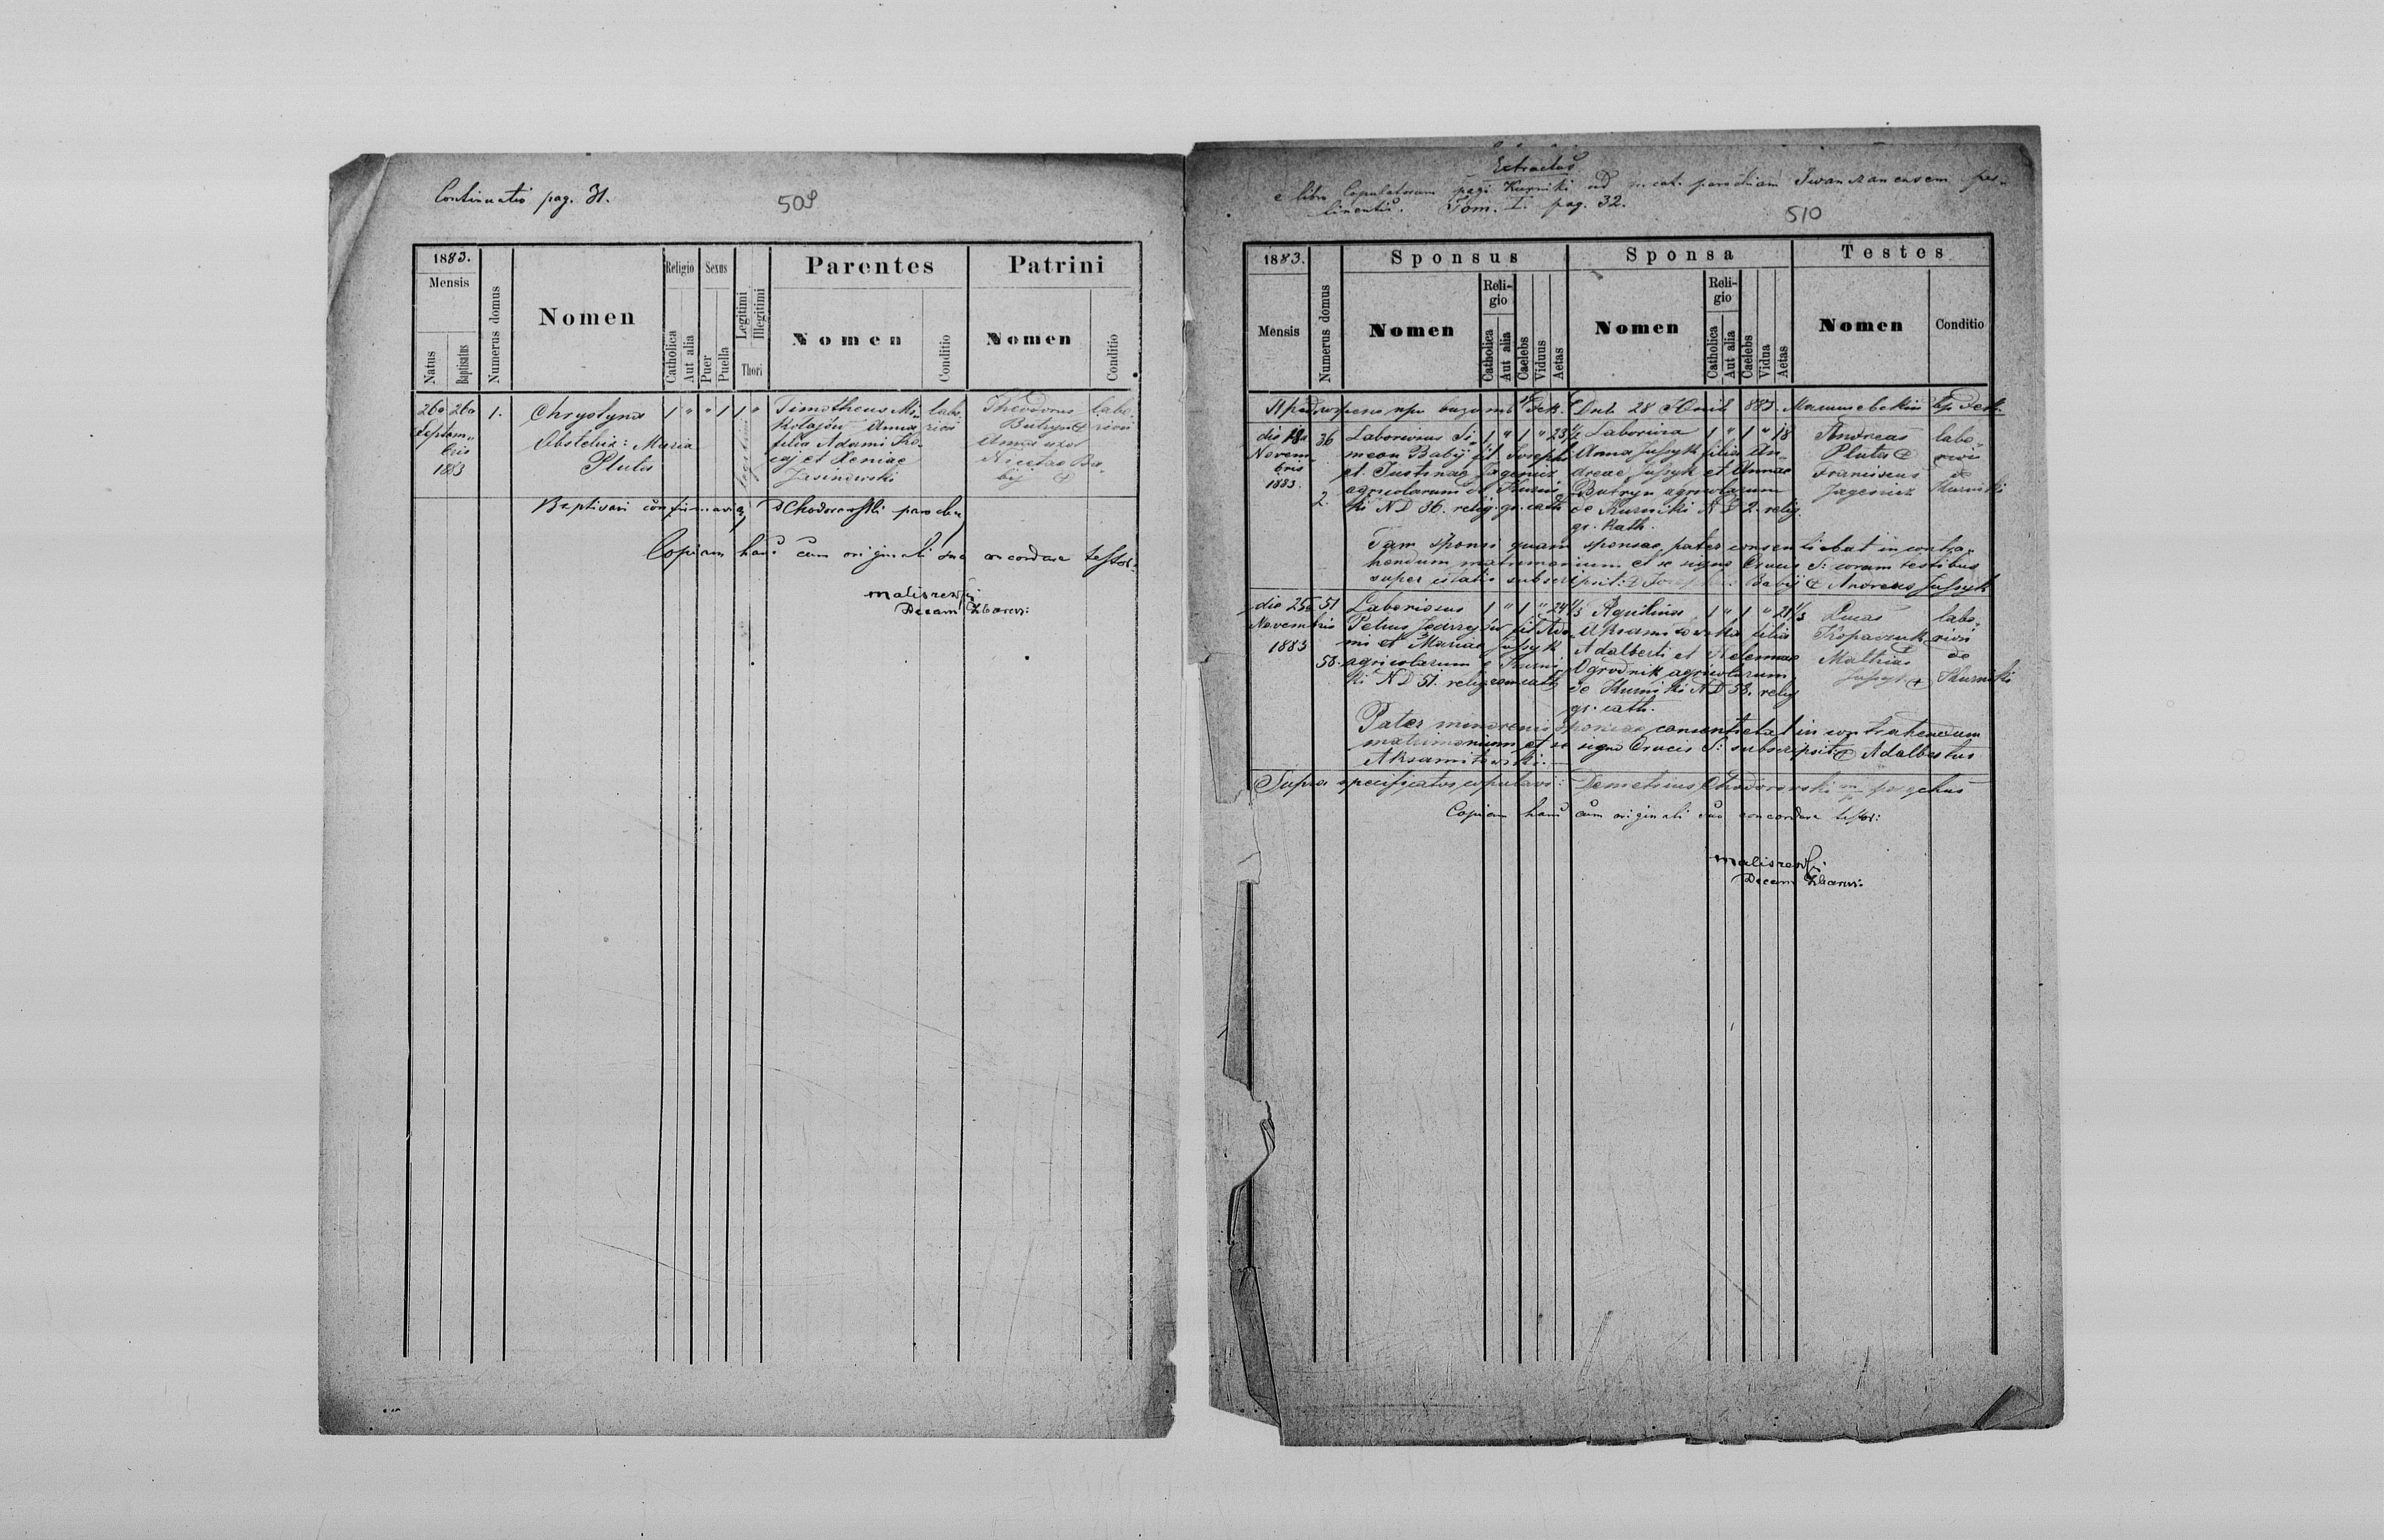 Continuatio pag. 31.
509
1883.
Mensis
Natus
Baptisatus
Numerus domus
Nomen
Religio
Catholica
Aut alia
Sexus
Puer
Puella
Legitimi
Illegitimi
Thori
Parentes
Nomen
Conditio
Patrini
Nomen
Conditio
26a 26a 1. Chrystyna 1 " " 1 1 " Timotheus Mi- labo- Theodorus labo-
Septem- Obstetrix: Maria kołajów Anna riosi Butryn + riosi
bris Pluta filia Adami
1883 et Xeniae Nicetae Ba-
Jasinowski bij +
Baptisavi confirmavi D Chodorowski parochus
Copiam hanc cum originali suo concordare testor:
Maliszewski
Decan Zbaraz:
Extractus
e libro Copulatorum pagi Kurniki ad parochiam Iwanczanensem per-
tinentis. Tom. I. pag. 32.
510
1883.
Mensis
Numerus domus
Sponsus
Nomen
Religio
Catholica
Aut alia
Caelebs
Viduus
Aetas
Sponsa
Nomen
Religio
Catholica
Aut alia
Caelebs
Vidua
Aetas
Testes
Nomen
Conditio
28 883.
die 18a 36 Laboriosus Si- 1 " 1 " 23 1/2 Laboriosa 1 " 1 " 18 Andreas labo-
Novem- meon Babij fil Josephi Anna Jussyk filia An- Pluta + riosi
bris et Justinae Jagenicz dreae Jussyk et Annae Franciscus de
1883. agricolarum de Kurni- Butryn agricolarum Jagenicz Kurniki
2. ki ND 36. relig. gr. cath de Kurniki ND 2. relig.
gr. kath.
Tam sponsi quam sponsae pater consentiebat in contra-
hendum matrimonium et se signo Crucis S: coram testibus
super citatis subscripsit: + Josephus Babij + Andreas Jussyk
die 25a 51 Laboriosus 1 " 1 " 24 1/3 Aquilina 1 " 1 " 21 1/3 Lucas labo-
Novembris Petrus fil Ada- Aksamitowska filia Kopaczuk riosi
1883 mi et Mariae Jussyk Adalberti et Helennae Mathias de
58. agricolarum e Kurni- Ogrodnik agricolarum Jussyk + Kurniki
ki ND 51. relig rom cath de Kurniki ND 58. relig
gr. cath.
Pater minorenis sponsae consentiebat in contrahendum
matrimonium et se signo Crucis S: subscripsit: + Adalbertus
Aksamitowski.
Supra specificatos copulavi: Demetrius Chodorowski parochus
Copiam hanc cum originali suo concordare testor:
Maliszewski
Decan Zbaraz: